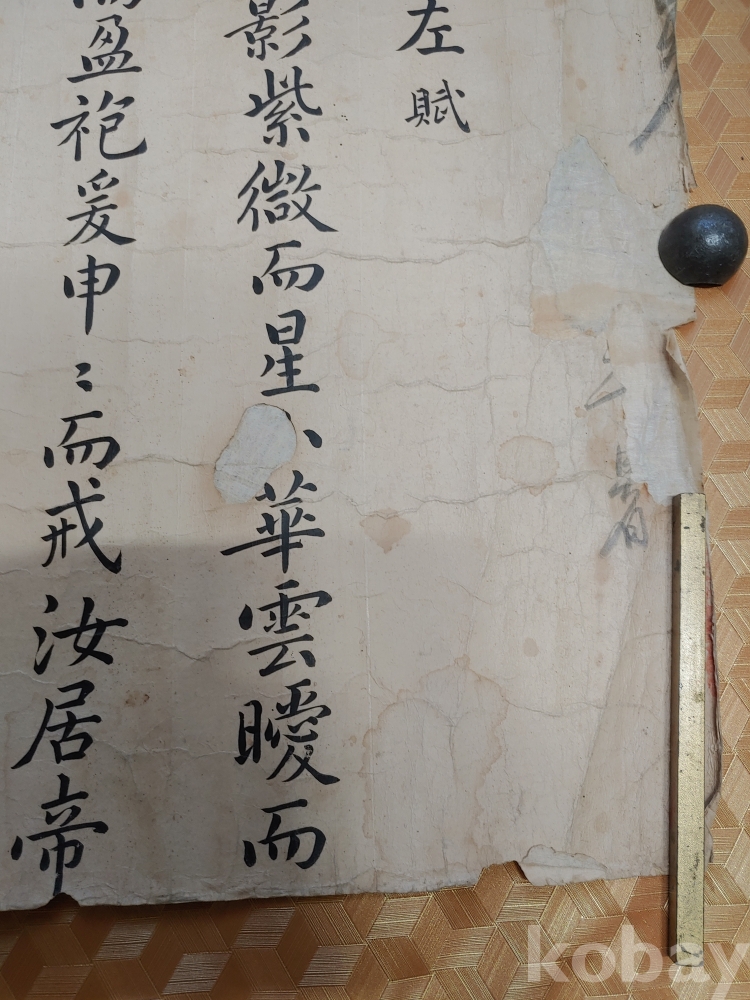 左賦
影紫微而星〻華雲曖而
盈袍爰申〻而戒汝居帝
kobay